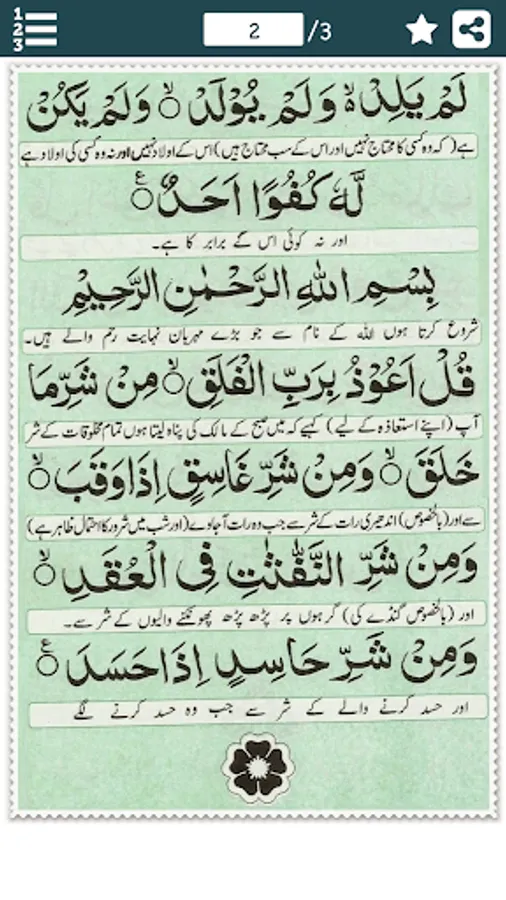 1
2
3
2
/3
لَمْ يَلِدْ ۙ وَلَمْ يُوْلَدْ ۙ وَلَمْ يَكُنْ
ہے (کہ وہ کسی کا محتاج نہیں اور اس کے سب محتاج ہیں) اس کے اولاد نہیں اور نہ وہ کسی کی اولاد ہے
لَّهٗ كُفُوًا اَحَدٌ ع
اور نہ کوئی اس کے برابر کا ہے۔
بِسْمِ اللّٰهِ الرَّحْمٰنِ الرَّحِيْمِ
شروع کرتا ہوں اللہ کے نام سے جو بڑے مہربان نہایت رحم والے ہیں۔
قُلْ اَعُوْذُ بِرَبِّ الْفَلَقِ ۙ مِنْ شَرِّ مَا
آپ (اپنے استعاذہ کے لیے) کہیے کہ میں صبح کے مالک کی پناہ لیتا ہوں تمام مخلوقات کے شر
خَلَقَ ۙ وَمِنْ شَرِّ غَاسِقٍ اِذَا وَقَبَ ۙ
سے اور (بالخصوص) اندھیری رات کے شر سے جب وہ رات آجاوے (اور شب میں شرور کا احتمال ظاہر ہے)
وَمِنْ شَرِّ النَّفّٰثٰتِ فِى الْعُقَدِ ۙ
اور (بالخصوص گنڈے کی) گرہوں پر پڑھ پڑھ پھونکنے والیوں کے شر سے۔
وَمِنْ شَرِّ حَاسِدٍ اِذَا حَسَدَ ع
اور حسد کرنے والے کے شر سے جب وہ حسد کرنے لگے